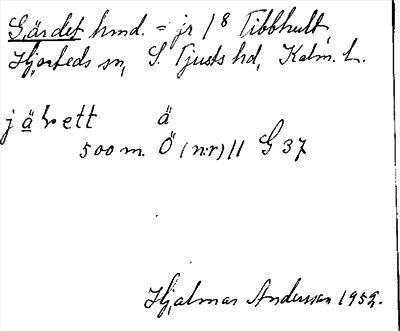 Gärdet hmd. = jr 1⁸ Tibbhult,
Hjorteds sn, S. Tjusts hd, Kalm. L.
jäḷett ä
500 m. Ö (n:r) 11 G 37
Hjalmar Andersson 1952.